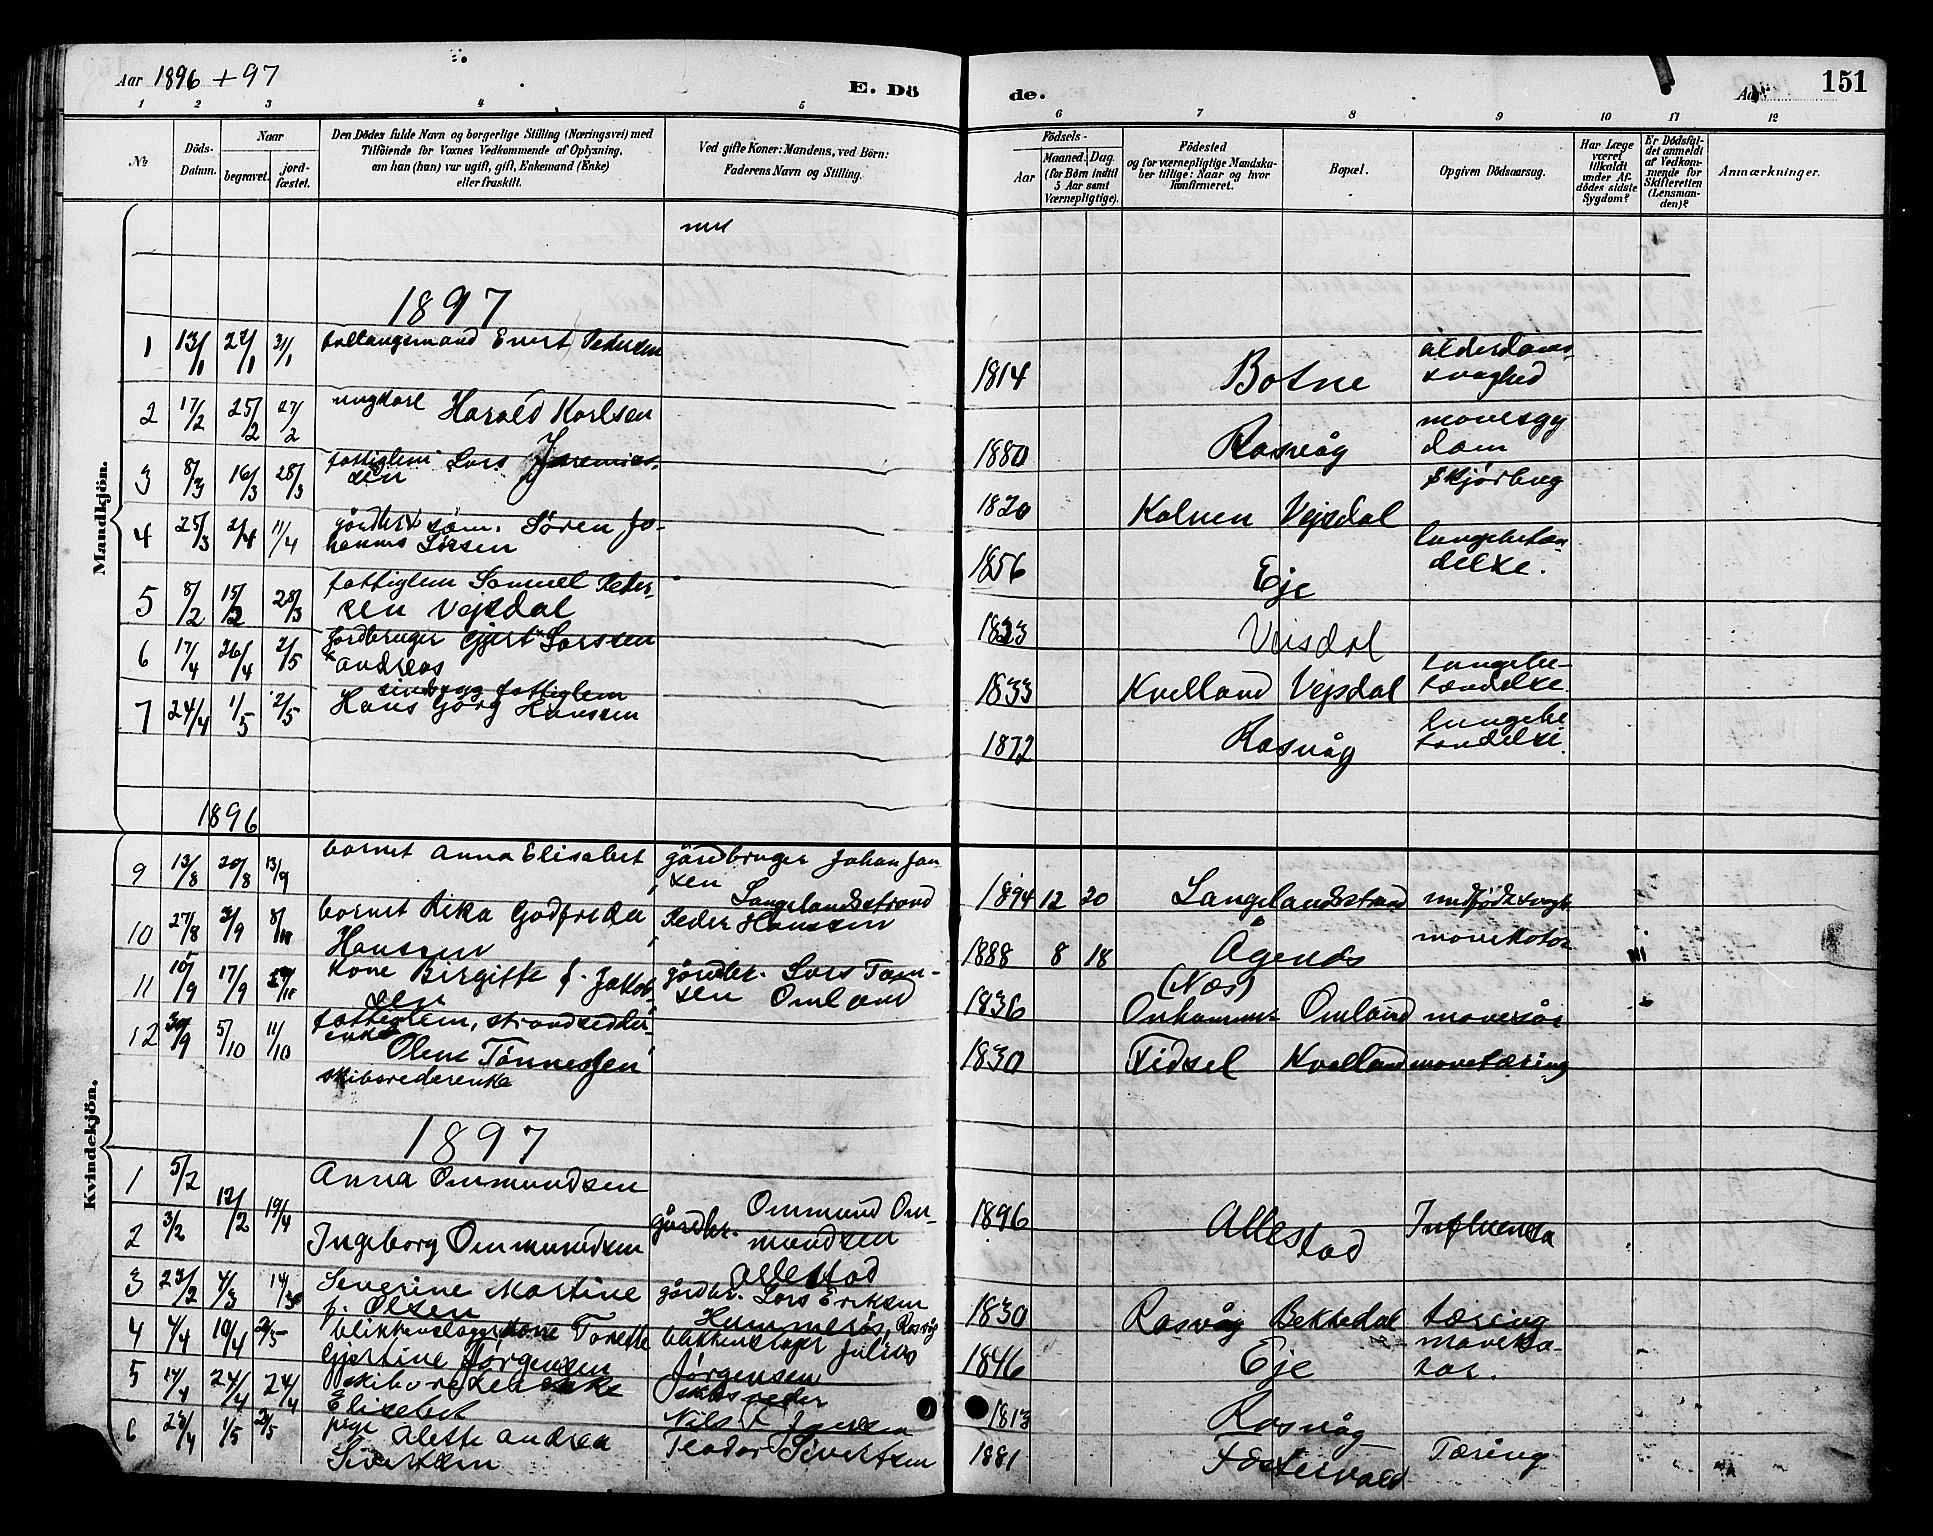 Aar 1896 + 97
E. Dö
de.
Aar
151
1 2 3 4 5
6 7 8 9 10 11 12
No
Döds-Datum.
Naar
begravet.
jord-fæstet.
Den Dödes fulde Navn og borgerlige Stilling (Næringsvei) med
Tilföiende for Voxnes Vedkommende af Oplysning,
om han (hun) var ugift, gift, Enkemand (Enke)
eller fraskilt.
Ved gifte Koner: Mandens, ved Börn:
Faderens Navn og Stilling.
Födsels-
Aar
Maaned. Dag.
(for Börn indtil
5 Aar samt
Værnepligtige).
Födested
og for værnepligtige Mandska-
ber tillige: Naar og hvor
konfirmeret.
Bopæl.
Opgiven Dödsaarsag.
Har Læge
været
tilkaldt
under Af-
dödes sidste
Sygdom?
Er Dödsfal-
det anmeldt
af Vedkom-
mende for
Skifteretten
(Lensman-
den)?
Anmærkninger.
Mandkjön.
1897
1 13/1 22/1 31/1 Pedersen
1814 Botne alderdoms-
svaghed
2 17/2 25/2 27/2 ungkarl Harald Karlsen
1880 Rasvåg mavesyg
dom
3 8/3 16/3 28/3 fattiglem Lars Jeremias-
sen
1820 Kalven Vejsdal skjørbug
4 25/3 2/4 11/4 Søren Jo-
hannes Larsen
1856 Eje lungebetæn-
delse.
5 8/2 15/2 28/3 fattiglem Samuel Peder-
sen Vejsdal
1823 Veisdal
6 17/4 26/4 2/5 gårdbruger Gjert Larssen
Andreas
1833 Kvelland Vejsdal lungebe-
tændelse.
7 24/4 1/5 2/5 sindssyg fattiglem
Hans Gjørg Hanssen
1872 Rasvåg lungebe
tændelse.
1896
Kvindekjön.
9 13/8 20/8 13/9 barnet Anna Elisabet gårdbruger Johan Jan-
sen
Langelandsstrand
1894 12 20 Langelandsstrand medfødt svagh
10 27/8 3/9 barnet Rika Godfreda Peder Hanssen
Hanssen
1888 8 18 Ågenes mavekatar
(Næs)
11 10/9 17/9 Kone Birgitte f. Jakob-
sen
gårdbr. Lars Tom-
sen Omland
1836 Omland mavesår
12 30/9 5/10 11/10 fattiglem, strandsidder
enke
Olene Tønnessen
skibsrederenke
1830 Fidsel Kvelland mavetæring
1897
1 5/2 Anna Ommundsen
12/2 19/4
2 3/2 Ingeborg Ommundsen gårdbr. Ommund Om-
mundsen
Allestad
1896 Allestad Influensa
3 23/2 4/3 Severine Martine
f. Olsen
gårdbr. Lars Eriksen
Hummerås, Rasvåg
1830 Rasvåg Bekkedal tæring
4 4/4 19/4 2/5 blikkenslagerkone Torette
Gjertine Jørgensen
blikkenslager Julius
Jørgensen
1846 Eje maveka-
tar.
5 17/4 24/4 24/4 skibsrederenke
Elisabet
skibsreder
Nils
1813 Rasvåg
6 24/4 1/5 2/5 pige Alette Andrea
Sivertsen
Teodor Sivertsen
1881 Tæring